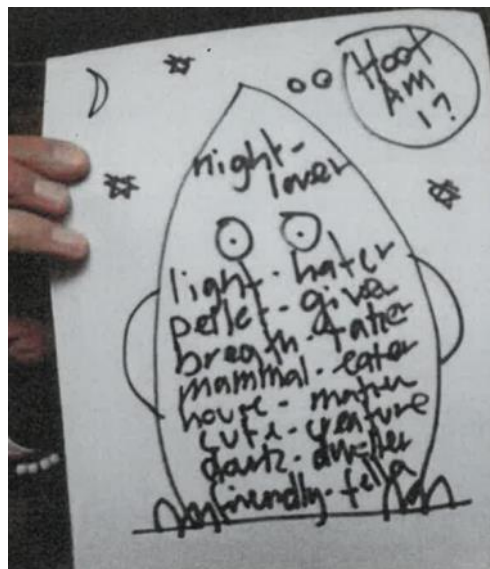 Hoot
AM
I?
night-
lover
light-hater
pellet-giver
breath-taker
mammal-eater
house-
cute-creature
dark-dweller
friendly-fella